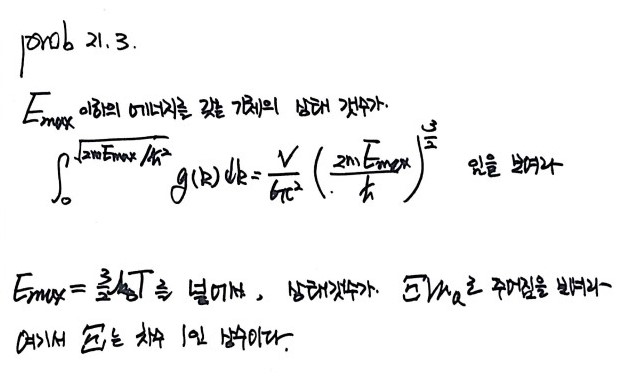 prob 21.3.
E_max 이하의 에너지를 갖는 기체의 상태 갯수가.
∫_0^{√(2mE_max/ħ²)} g(k)dk = V/6π² (2mE_max/ħ)^{3/2} 임을 보여라
E_max = 3/2 k_BT 를 넣어서, 상태갯수가 Ξ V n_Q로 주어짐을 보여라
여기서 Ξ는 차수 1인 상수이다.